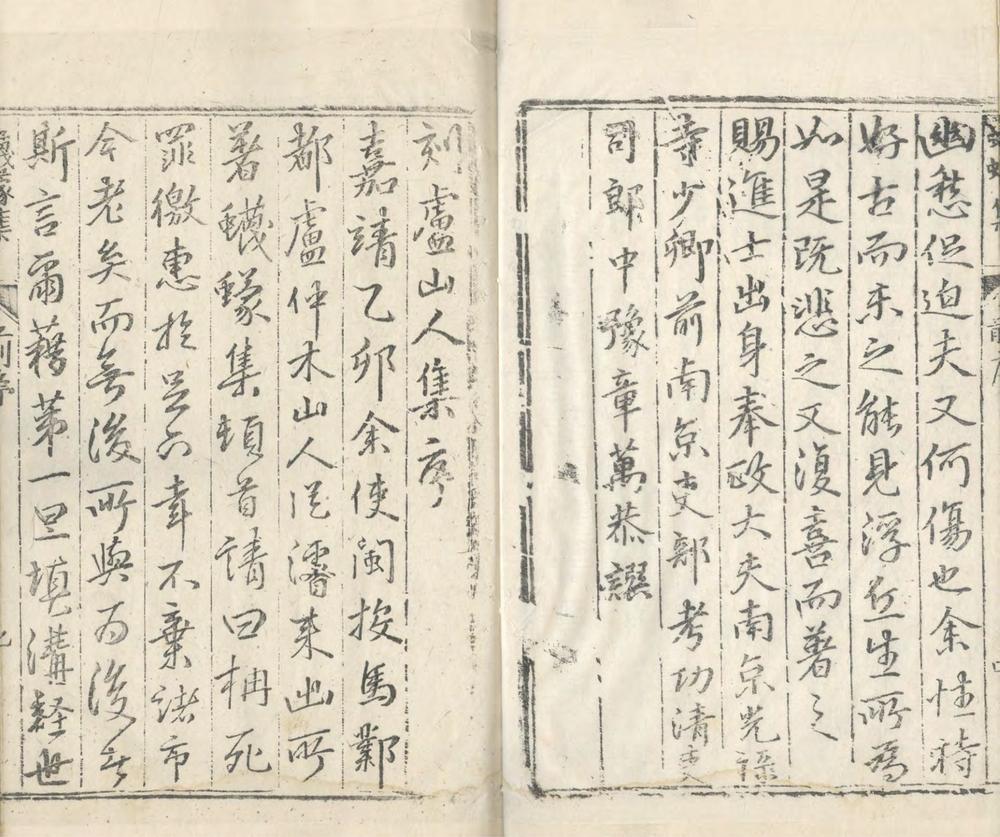 幽愁促迫夫又何傷也余性特
好古而未之能見浮丘生所為
如是既悲之又復喜而著之
賜進士出身奉政大夫南京光祿
寺少卿前南京吏部考功清吏
司郎中豫章萬恭譔
刻盧山人集序
嘉靖乙卯余使閩按馬鄴
都盧仲木山人從濬來出所
著蠛蠓集頓首請曰柟死
罪徼惠於足下幸不棄諸市
今老矣而無後所與為後者
斯言爾藉第一旦填溝壑世
蠛蠓集